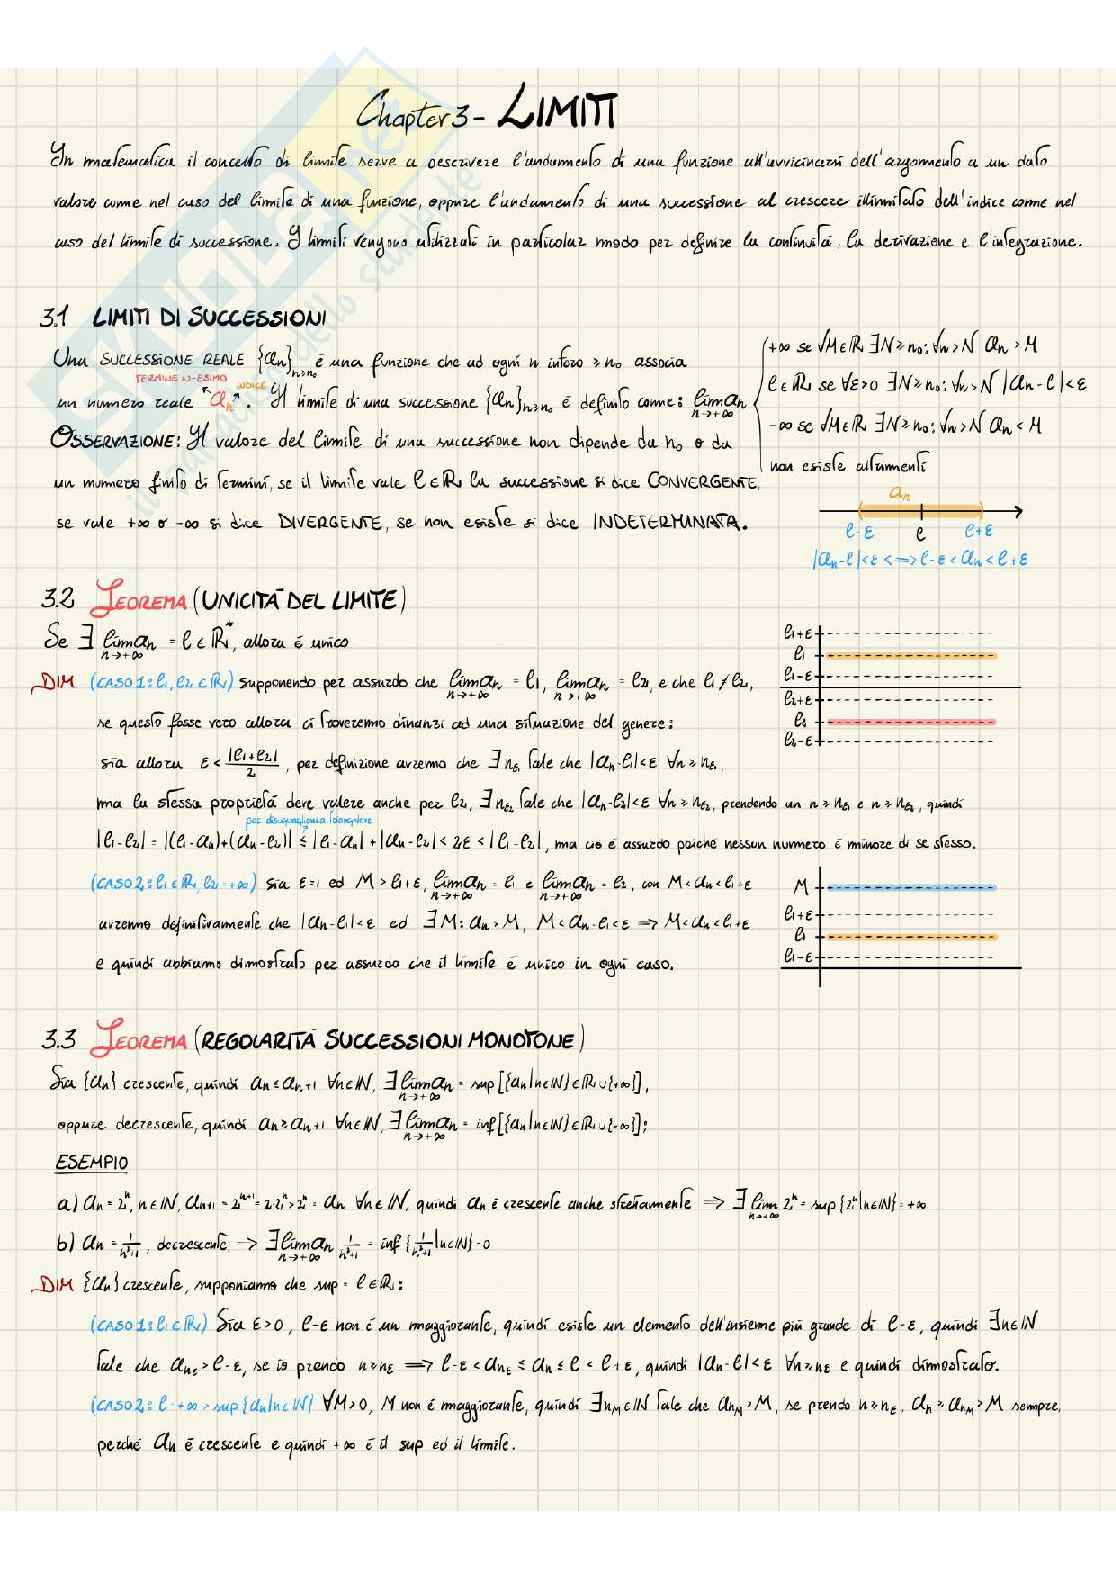 Chapter 3 - LIMITI
In matematica il concetto di limite serve a descrivere l'andamento di una funzione all'avvicinarsi dell'argomento a un dato
valore come nel caso del limite di una funzione, oppure l'andamento di una successione al crescere illimitato dell'indice come nel
caso del limite di successione. I limiti vengono utilizzati in particolar modo per definire la continuità, la derivazione e l'integrazione.
3.1 LIMITI DI SUCCESSIONI
Una SUCCESSIONE REALE {an}n≥n₀ è una funzione che ad ogni n intero ≥ n₀ associa
TERMINE N-ESIMO INDICE
un numero reale an. Il limite di una successione {an}n≥n₀ è definito come: lim an n→+∞
+∞ se ∀M∈ℝ ∃N≥n₀: ∀n>N an > M
ℓ∈ℝ se ∀ε>0 ∃N≥n₀: ∀n>N |an-ℓ|<ε
-∞ se ∀M∈ℝ ∃N≥n₀: ∀n>N an < M
non esiste altrimenti
OSSERVAZIONE: Il valore del limite di una successione non dipende da n₀ o da
un numero finito di termini, se il limite vale ℓ∈ℝ la successione si dice CONVERGENTE,
se vale +∞ o -∞ si dice DIVERGENTE, se non esiste si dice INDETERMINATA.
an
ℓ-ε ℓ ℓ+ε
|an-ℓ|<ε <=> ℓ-ε < an < ℓ+ε
3.2 TEOREMA (UNICITÀ DEL LIMITE)
Se ∃ lim an n→+∞ = ℓ∈ℝ*, allora è unico
DIM (CASO 1: ℓ₁, ℓ₂ ∈ℝ) supponendo per assurdo che lim an n→+∞ = ℓ₁, lim an n→+∞ = ℓ₂, e che ℓ₁≠ℓ₂,
se questo fosse vero allora ci troveremo dinanzi ad una situazione del genere:
sia allora ε < |ℓ₁+ℓ₂|/2, per definizione avremo che ∃nε₁ tale che |an-ℓ₁|<ε ∀n≥nε₁
ℓ₁+ε
ℓ₁
ℓ₁-ε
ℓ₂+ε
ℓ₂
ℓ₂-ε
ma la stessa proprietà deve valere anche per ℓ₂, ∃nε₂ tale che |an-ℓ₂|<ε ∀n≥nε₂, prendendo un n≥nε₁ e n≥nε₂, quindi
per disuguaglianza triangolare
|ℓ₁-ℓ₂| = |(ℓ₁-an)+(an-ℓ₂)| ≤ |ℓ₁-an|+|an-ℓ₂| < 2ε < |ℓ₁-ℓ₂|, ma ciò è assurdo poiché nessun numero è minore di se stesso.
(CASO 2: ℓ₁∈ℝ, ℓ₂=+∞) sia ε=1 ed M > ℓ₁+ε, lim an n→+∞ = ℓ₁ e lim an n→+∞ = ℓ₂, con M<an<ℓ₁+ε
avremo definitivamente che |an-ℓ₁|<ε ed ∃M: an>M, M<an-ℓ₁<ε => M<an<ℓ₁+ε
e quindi abbiamo dimostrato per assurdo che il limite è unico in ogni caso.
M
ℓ₁+ε
ℓ₁
ℓ₁-ε
3.3 TEOREMA (REGOLARITÀ SUCCESSIONI MONOTONE)
Sia {an} crescente, quindi an≤an+1 ∀n∈ℕ, ∃ lim an n→+∞ = sup[{an|n∈ℕ}∈ℝ∪{+∞}],
oppure decrescente, quindi an≥an+1 ∀n∈ℕ, ∃ lim an n→+∞ = inf[{an|n∈ℕ}∈ℝ∪{-∞}];
ESEMPIO
a) an = 2ⁿ, n∈ℕ, an+1 = 2ⁿ⁺¹ = 2·2ⁿ > 2ⁿ = an ∀n∈ℕ, quindi an è crescente anche strettamente => ∃ lim n→+∞ 2ⁿ = sup{2ⁿ|n∈ℕ} = +∞
b) an = 1/n²+1, decrescente => ∃ lim an n→+∞ 1/n²+1 = inf{1/n²+1|n∈ℕ} = 0
DIM {an} crescente, supponiamo che sup = ℓ∈ℝ:
(CASO 1: ℓ∈ℝ) Sia ε>0, ℓ-ε non è un maggiorante, quindi esiste un elemento dell'insieme più grande di ℓ-ε, quindi ∃n∈ℕ
tale che anε > ℓ-ε, se io prendo n≥nε => ℓ-ε < anε ≤ an ≤ ℓ < ℓ+ε, quindi |an-ℓ|<ε ∀n≥nε e quindi dimostrato.
(CASO 2: ℓ=+∞=sup{an|n∈ℕ}) ∀M>0, M non è maggiorante, quindi ∃nM∈ℕ tale che anM>M, se prendo n≥nε, an≥anM>M sempre,
perché an è crescente e quindi +∞ è il sup ed il limite.